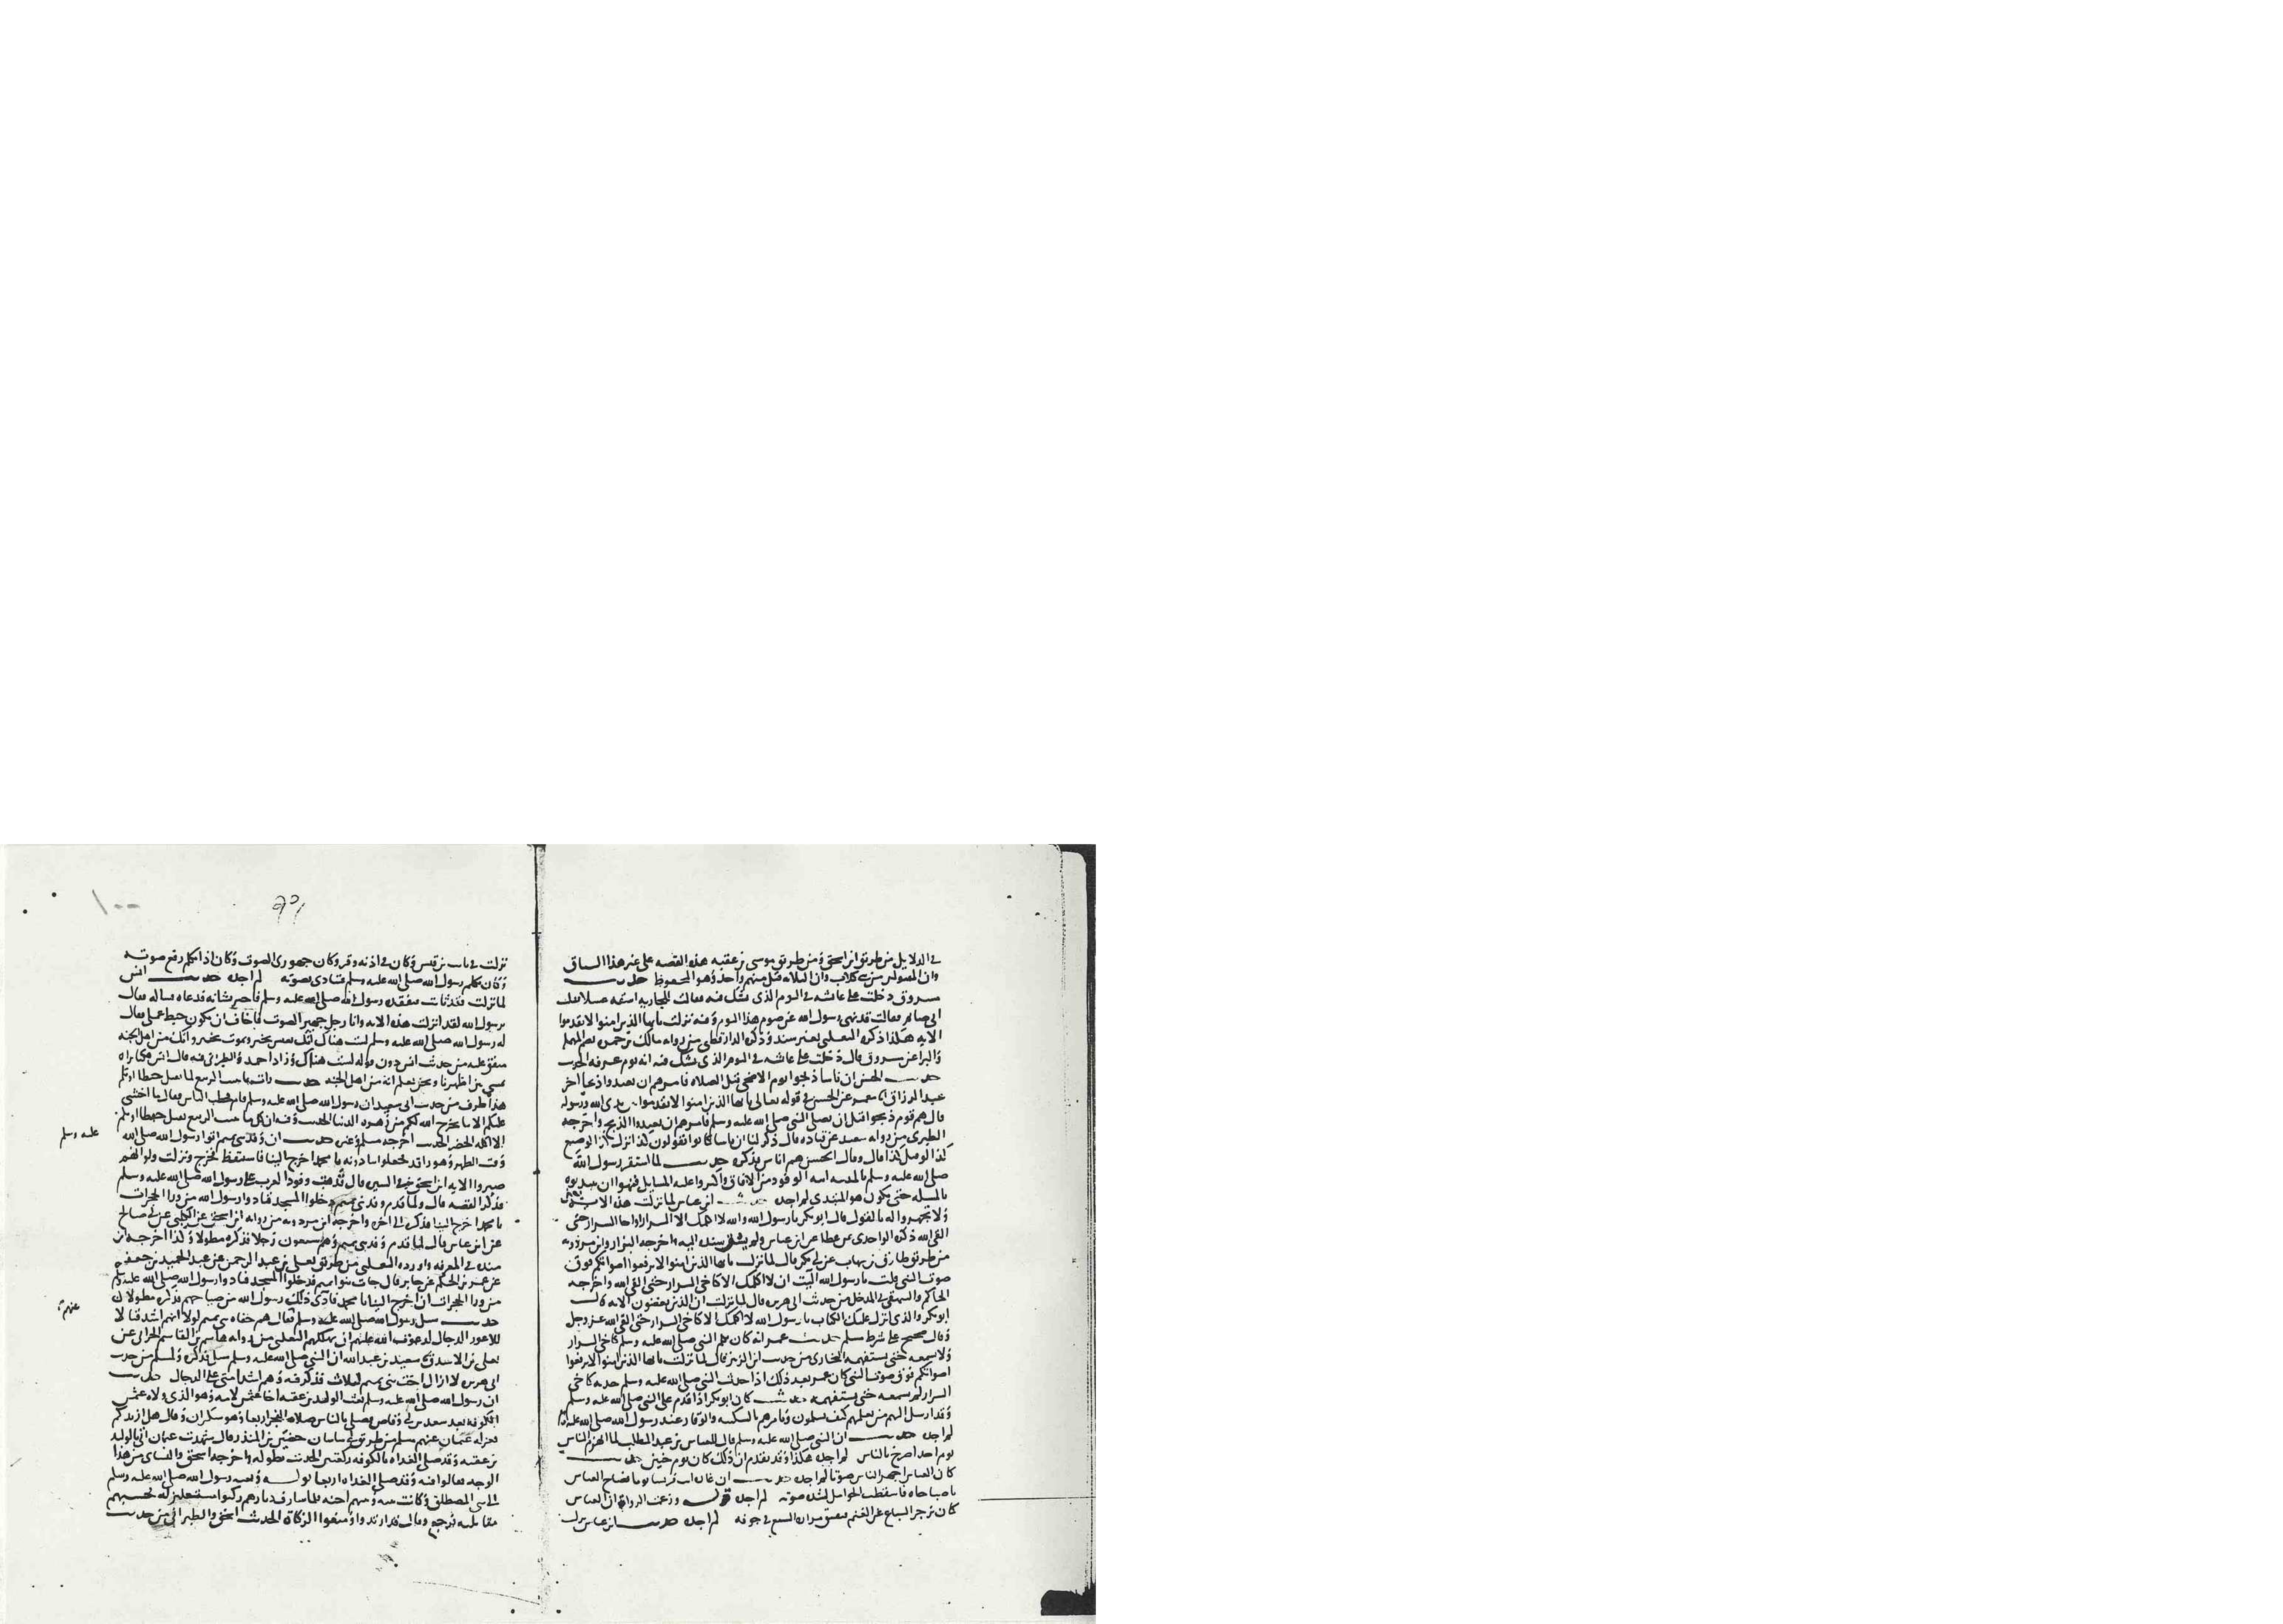 في الدلايل من طريق ابن اسحق ومن طريق موسى بن عقبه هذه القصه على غير هذا السياق
وان المقتولين من بني كلاب وان الثلاثه قتل منهم واحد وهو المحفوظ حديث
مسروق دخلت على عايشه في اليوم الذي يشك فيه فقالت للجاريه اسقيه عسلا فقلت
اني صايم فقالت قد نهى رسول الله عن صوم هذا اليوم وفيه نزلت يايها الذين امنوا لا تقدموا
الايه هكذا ذكره الثعلبي بغير سند وذكره الدارقطني من روايه مالك بن حمره بضم المهمله
والرا عن مسروق قال دخلت على عايشه في اليوم الذي يشك فيه انه يوم عرفه الحديث
حديث الحسن ان ناسا ذبحوا يوم الاضحى قبل الصلاه فامرهم ان يعيدوا ذبحا اخر
عبد الرزاق انا معمر عن الحسن في قوله تعالى يايها الذين امنوا لا تقدموا بين يدي الله ورسوله
قال هم قوم ذبحوا قبل ان يصلي النبي صلى الله عليه وسلم فامرهم ان يعيدوا الذبح واخرجه
الطبري من روايه سعيد عن قتاده قال ذكر لنا ان ناسا كانوا يقولون لو انزل كذا لو صنع
كذا قال وقال الحسن هم اناس فذكره حديث لما استقر رسول الله
صلى الله عليه وسلم بالمدينه اتته الوفود من الافاق واكثروا عليه المسايل فنهوا ان يبتدوه
بالمسله حتى يكون هو المبتدي لم اجده حديث ابن عباس لما نزلت هذه الايه
ولا تجهروا له بالقول قال ابو بكر يا رسول الله والله لا اكلمك الا السرار او اخا السرار حتى
القى الله ذكره الواحدي عن عطا عن ابن عباس ولم سنده اليه واخرجه البزار وابن مردويه
من طريق طارق بن شهاب عن ابي بكر قال لما نزلت يايها الذين امنوا لا ترفعوا اصواتكم فوق
صوت النبي قلت يا رسول الله اليت ان لا اكلمك الا كاخي السرار حتى القى الله واخرجه
الحاكم والبيهقي في المدخل من حديث ابي هريره قال لما نزلت ان الذين يغضون الايه قال
ابو بكر والذي انزل عليك الكتاب يا رسول الله لا اكلمك الا كاخي السرار حتى القى الله عز وجل
وقال صحيح على شرط مسلم حديث عمر انه كان يكلم النبي صلى الله عليه وسلم كاخي السرار
ولا يسمعه حتى يستفهمه البخاري من حديث ابن الزبير قال لما نزلت يايها الذين امنوا لا ترفعوا
اصواتكم فوق صوت النبي كان عمر بعد ذلك اذا حدث النبي صلى الله عليه وسلم حدثه كاخي
السرار لم يسمعه حتى يستفهمه حديث كان ابو بكر اذا قدم على النبي صلى الله عليه وسلم
وفد ارسل اليهم من يعلمهم كيف يسلمون ويامرهم بالسكينه والوقار عند رسول الله صلى الله عليه وسلم
لم اجده حديث ان النبي صلى الله عليه وسلم قال للعباس بن عبد المطلب لما انهزم الناس
يوم احد اصرخ بالناس لم اجده هكذا وقد تقدم ان ذلك كان يوم حنين حديث
كان العباس اجهر الناس صوتا لم اجده حديث ان غارة اتت قريبا يوما فصاح العباس
يا صباحاه فاسقطت الحوامل لشده صوته لم اجده قوله وزعمت الرواه ان العباس
كان يزجر السباع عن الغنم فيفتق مراره السبع في جوفه لم اجده حديث ابن عباس
نزلت في ثابت بن قيس وكان في اذنه وقر وكان جهوري الصوت وكان اذا تكلم رفع صوته
وكان يكلم رسول الله صلى الله عليه وسلم فتاذى بصوته لم اجده حديث انس
لما نزلت فقد ثابت فتفقده رسول الله صلى الله عليه وسلم فاخبر بشانه فدعاه فساله فقال
يرسول الله لقد انزلت هذه الايه وانا رجل جهير الصوت فاخاف ان يكون حبط عملي فقال
له رسول الله صلى الله عليه وسلم لست هناك انك تعيش بخير وتموت بخير وانك من اهل الجنه
متفق عليه من حديث انس دون قوله لست هناك وزاد احمد والطبراني فيه قال انس فكنا نراه
يمشي بين اظهرنا ونحن نعلم انه من اهل الجنه حديث وان مما ينبت الربيع لما يقتل حبطا او يلم
هذا طرف من حديث ابي سعيد ان رسول الله صلى الله عليه وسلم قام فخطب الناس فقال ما اخشى
عليكم الا ما يخرج الله لكم من زهره الدنيا الحديث وفيه ان كل ما ينبت الربيع يقتل حبطا او يلم
الا اكله الخضر الحديث اخرجه مسلم وغيره حديث ان وفد بني تميم اتوا رسول الله صلى الله
عليه وسلم
وقت الظهر وهو راقد فجعلوا ينادونه يا محمد اخرج الينا فاستيقظ فخرج ونزلت ولو انهم
صبروا الايه ابن اسحق في السير قال قدمت وفود العرب على رسول الله صلى الله عليه وسلم
فذكر القصه قال ولما قدم وفد بني تميم دخلوا المسجد فنادوا رسول الله من ورا الحجرات
يا محمد اخرج الينا فذكره الى اخره واخرجه ابن مردويه من روايه ابن اسحق عن الكلبي عن ابي صالح
عن ابن عباس قال لما قدم وفد بني تميم وهم سبعون رجلا فذكره مطولا وكذا اخرجه ابن
منده في المعرفه واورده الثعلبي من طريق يعلى بن عبد الرحمن عن عبد الحميد بن جعفر
عن عمر بن الحكم عن جابر قال جات بنو تميم فدخلوا المسجد فنادوا رسول الله صلى الله عليه وسلم
من ورا الحجرات ان اخرج الينا يا محمد فاذى ذلك رسول الله من صياحهم فذكره مطولا
حديث سئل رسول الله صلى الله عليه وسلم عنهم فقال هم جفاه بني تميم لولا انهم اشد قتالا
للاعور الدجال لدعوت الله عليهم ان يهلكهم الثعلبي من روايه هاشم بن القاسم الحراني عن
يعلى بن الاشدق سعيد بن عبد الله ان النبي صلى الله عليه وسلم سئل فذكره ولمسلم من حديث
ابي هريره لا ازال احب بني تميم لثلاث فذكر فيه وهم اشد امتي على الدجال حديث
ان رسول الله صلى الله عليه وسلم بعث الوليد بن عقبه اخا عثمن لامه وهو الذي ولاه عثمن
الكوفه بعد سعد بن ابي وقاص فصلى بالناس صلاه الفجر اربعا وهو سكران وقال هل ازيدكم
فعزله عثمان عنهم مسلم من طريق ابي ساسان حضين بن المنذر قال شهدت عثمان اتى بالوليد
بن عقبه وقد صلى الغداه بالكوفه ركعتين الحديث بطوله واخرجه اسحق والنساي من هذا
الوجه فقالوا فيه وقد صلى الغداه اربعا قوله وبعثه رسول الله صلى الله عليه وسلم
الى بني المصطلق وكانت بينه وبينهم احنه فلما شارف ديارهم ركبوا مستقبلين له فحسبهم
مقاتليه فرجع وقال قد ارتدوا ومنعوا الزكاة الحديث اسحق والطبراني من حديث